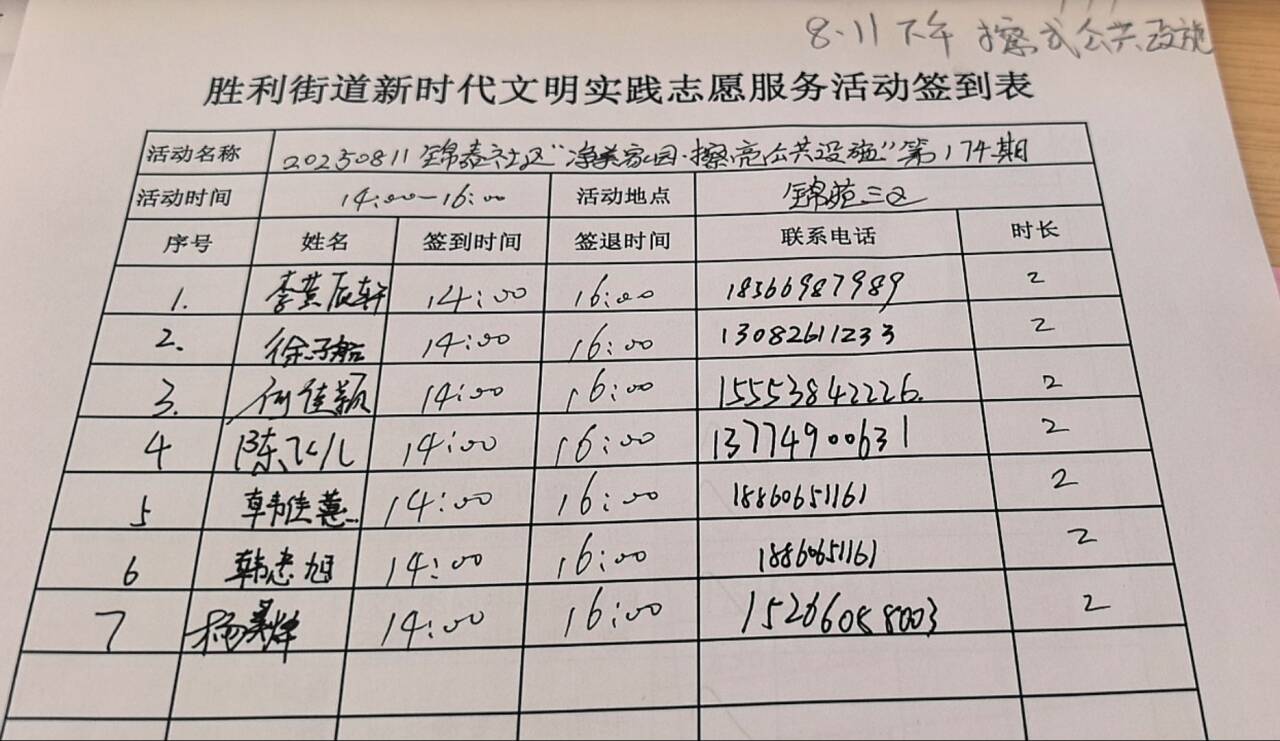 8.11下午 擦式公共设施
胜利街道新时代文明实践志愿服务活动签到表
活动名称 20250811锦泰社区“净美家园·擦亮公共设施”第174期
活动时间 14:00-16:00 活动地点 锦苑三区
序号 姓名 签到时间 签退时间 联系电话 时长
1. 李黄辰轩 14:00 16:00 18366987989 2
2. 徐子船 14:00 16:00 13082611233 2
3. 何佳颖 14:00 16:00 15553842226. 2
4 陈飞儿 14:00 16:00 13774900631 2
5 韩佳薏 14:00 16:00 18860651161 2
6 韩忠旭 14:00 16:00 18860651161 2
7 杨昊烨 14:00 16:00 15266058003 2